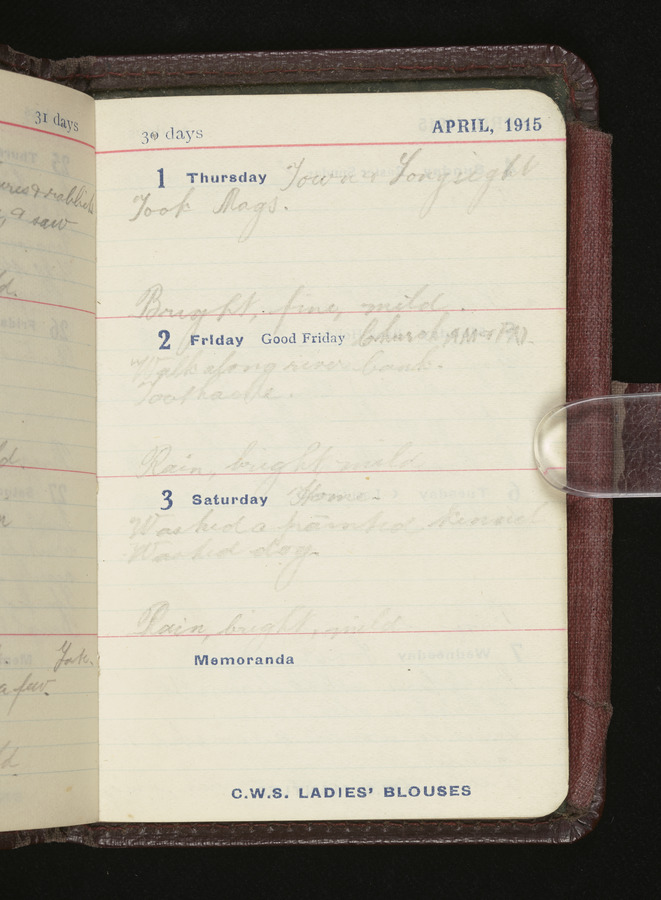 31 days
ures & rabbits
a saw
d.
d.
n
Jak.
a few.
ld
30 days
APRIL, 1915
1 Thursday Town & Longsight
Took Mags.
Bright, fine, mild.
2 Friday Good Friday Church AM & PM.
Walk along river bank.
Toothache.
Rain, bright mild
3 Saturday Home.
Washed & painted kennel
Washed dog.
Rain, bright, mild
Memoranda
C.W.S. LADIES' BLOUSES